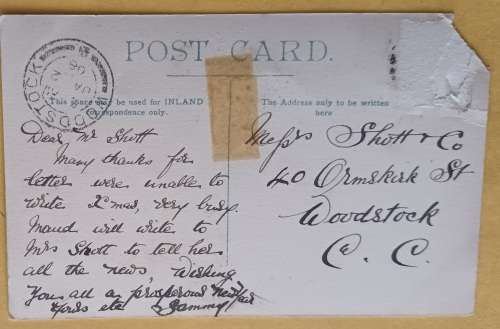 WOODSTOCK
POST CARD.
This space may be used for INLAND
correspondence only.
The Address only to be written
here
Dear Mr Shott
Many thanks for
letter were unable to
write last mail, very busy.
Maud will write to
Mrs Shott to tell her
all the news, Wishing
You all a prosperous new year
Yours etc Sammy
Messrs Shott & Co
40 Ormskirk St
Woodstock
C. C.